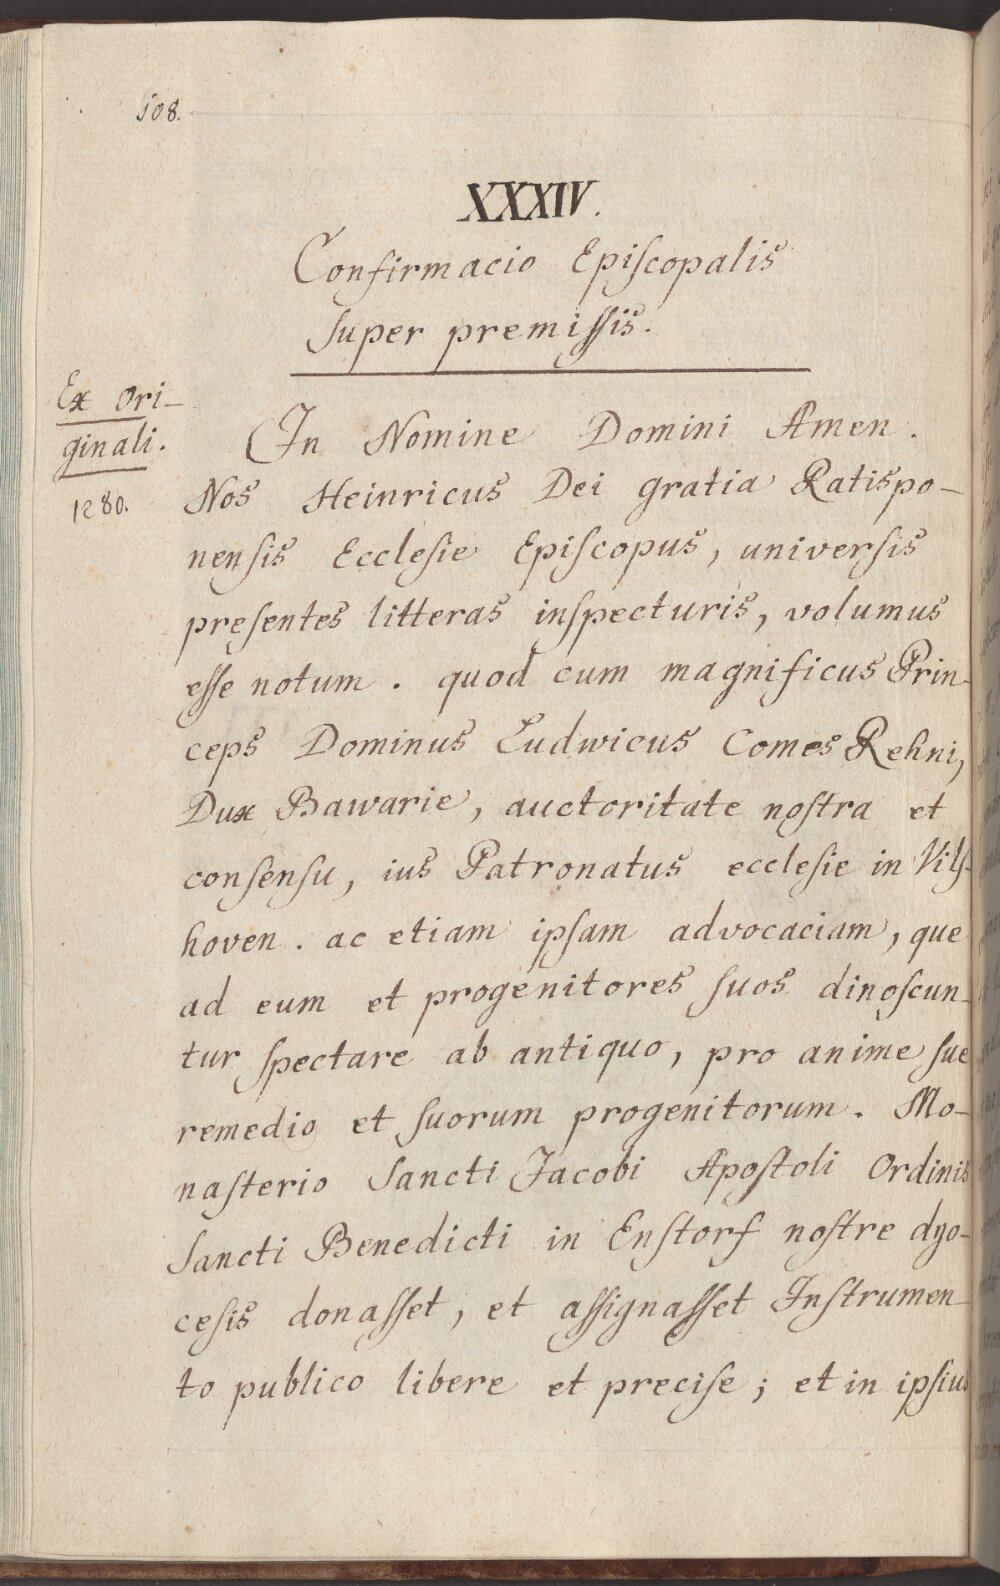 108.
XXXIV.
Confirmacio Episcopalis
super premissis.
Ex Ori-
ginali.
1280.
In Nomine Domini Amen.
Nos Heinricus Dei gratia Ratispo-
nensis Ecclesie Episcopus, universis
presentes litteras inspecturis, volumus
esse notum. quod cum magnificus Prin-
ceps Dominus Ludwicus Comes Rehni,
Dux Bawarie, auctoritate nostra et
consensu, ius Patronatus ecclesie in Vils-
hoven. ac etiam ipsam advocaciam, que
ad eum et progenitores suos dinoscun-
tur spectare ab antiquo, pro anime sue
remedio et suorum progenitorum. Mo-
nasterio Sancti Jacobi Apostoli Ordinis
Sancti Benedicti in Enstorf nostre dyo-
cesis donasset, et assignasset Instrumen-
to publico libere et precise; et in ipsius